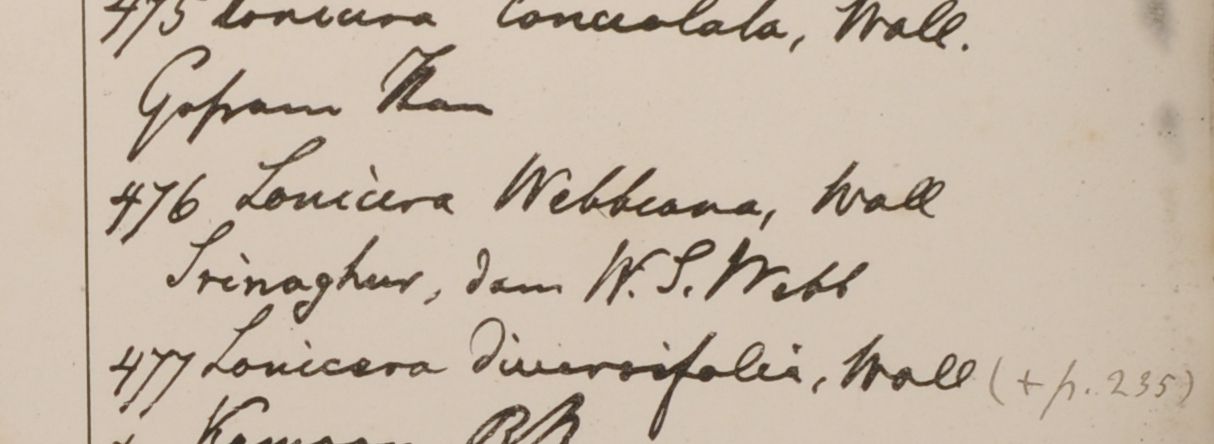 475 Lonicera lanceolata, Wall.
Gosam Than
476 Lonicera Webbiana, Wall
Srinaghur, dam W. S. Webb
477 Lonicera diversifolia, Wall (+ p. 235)
Kamaon RB